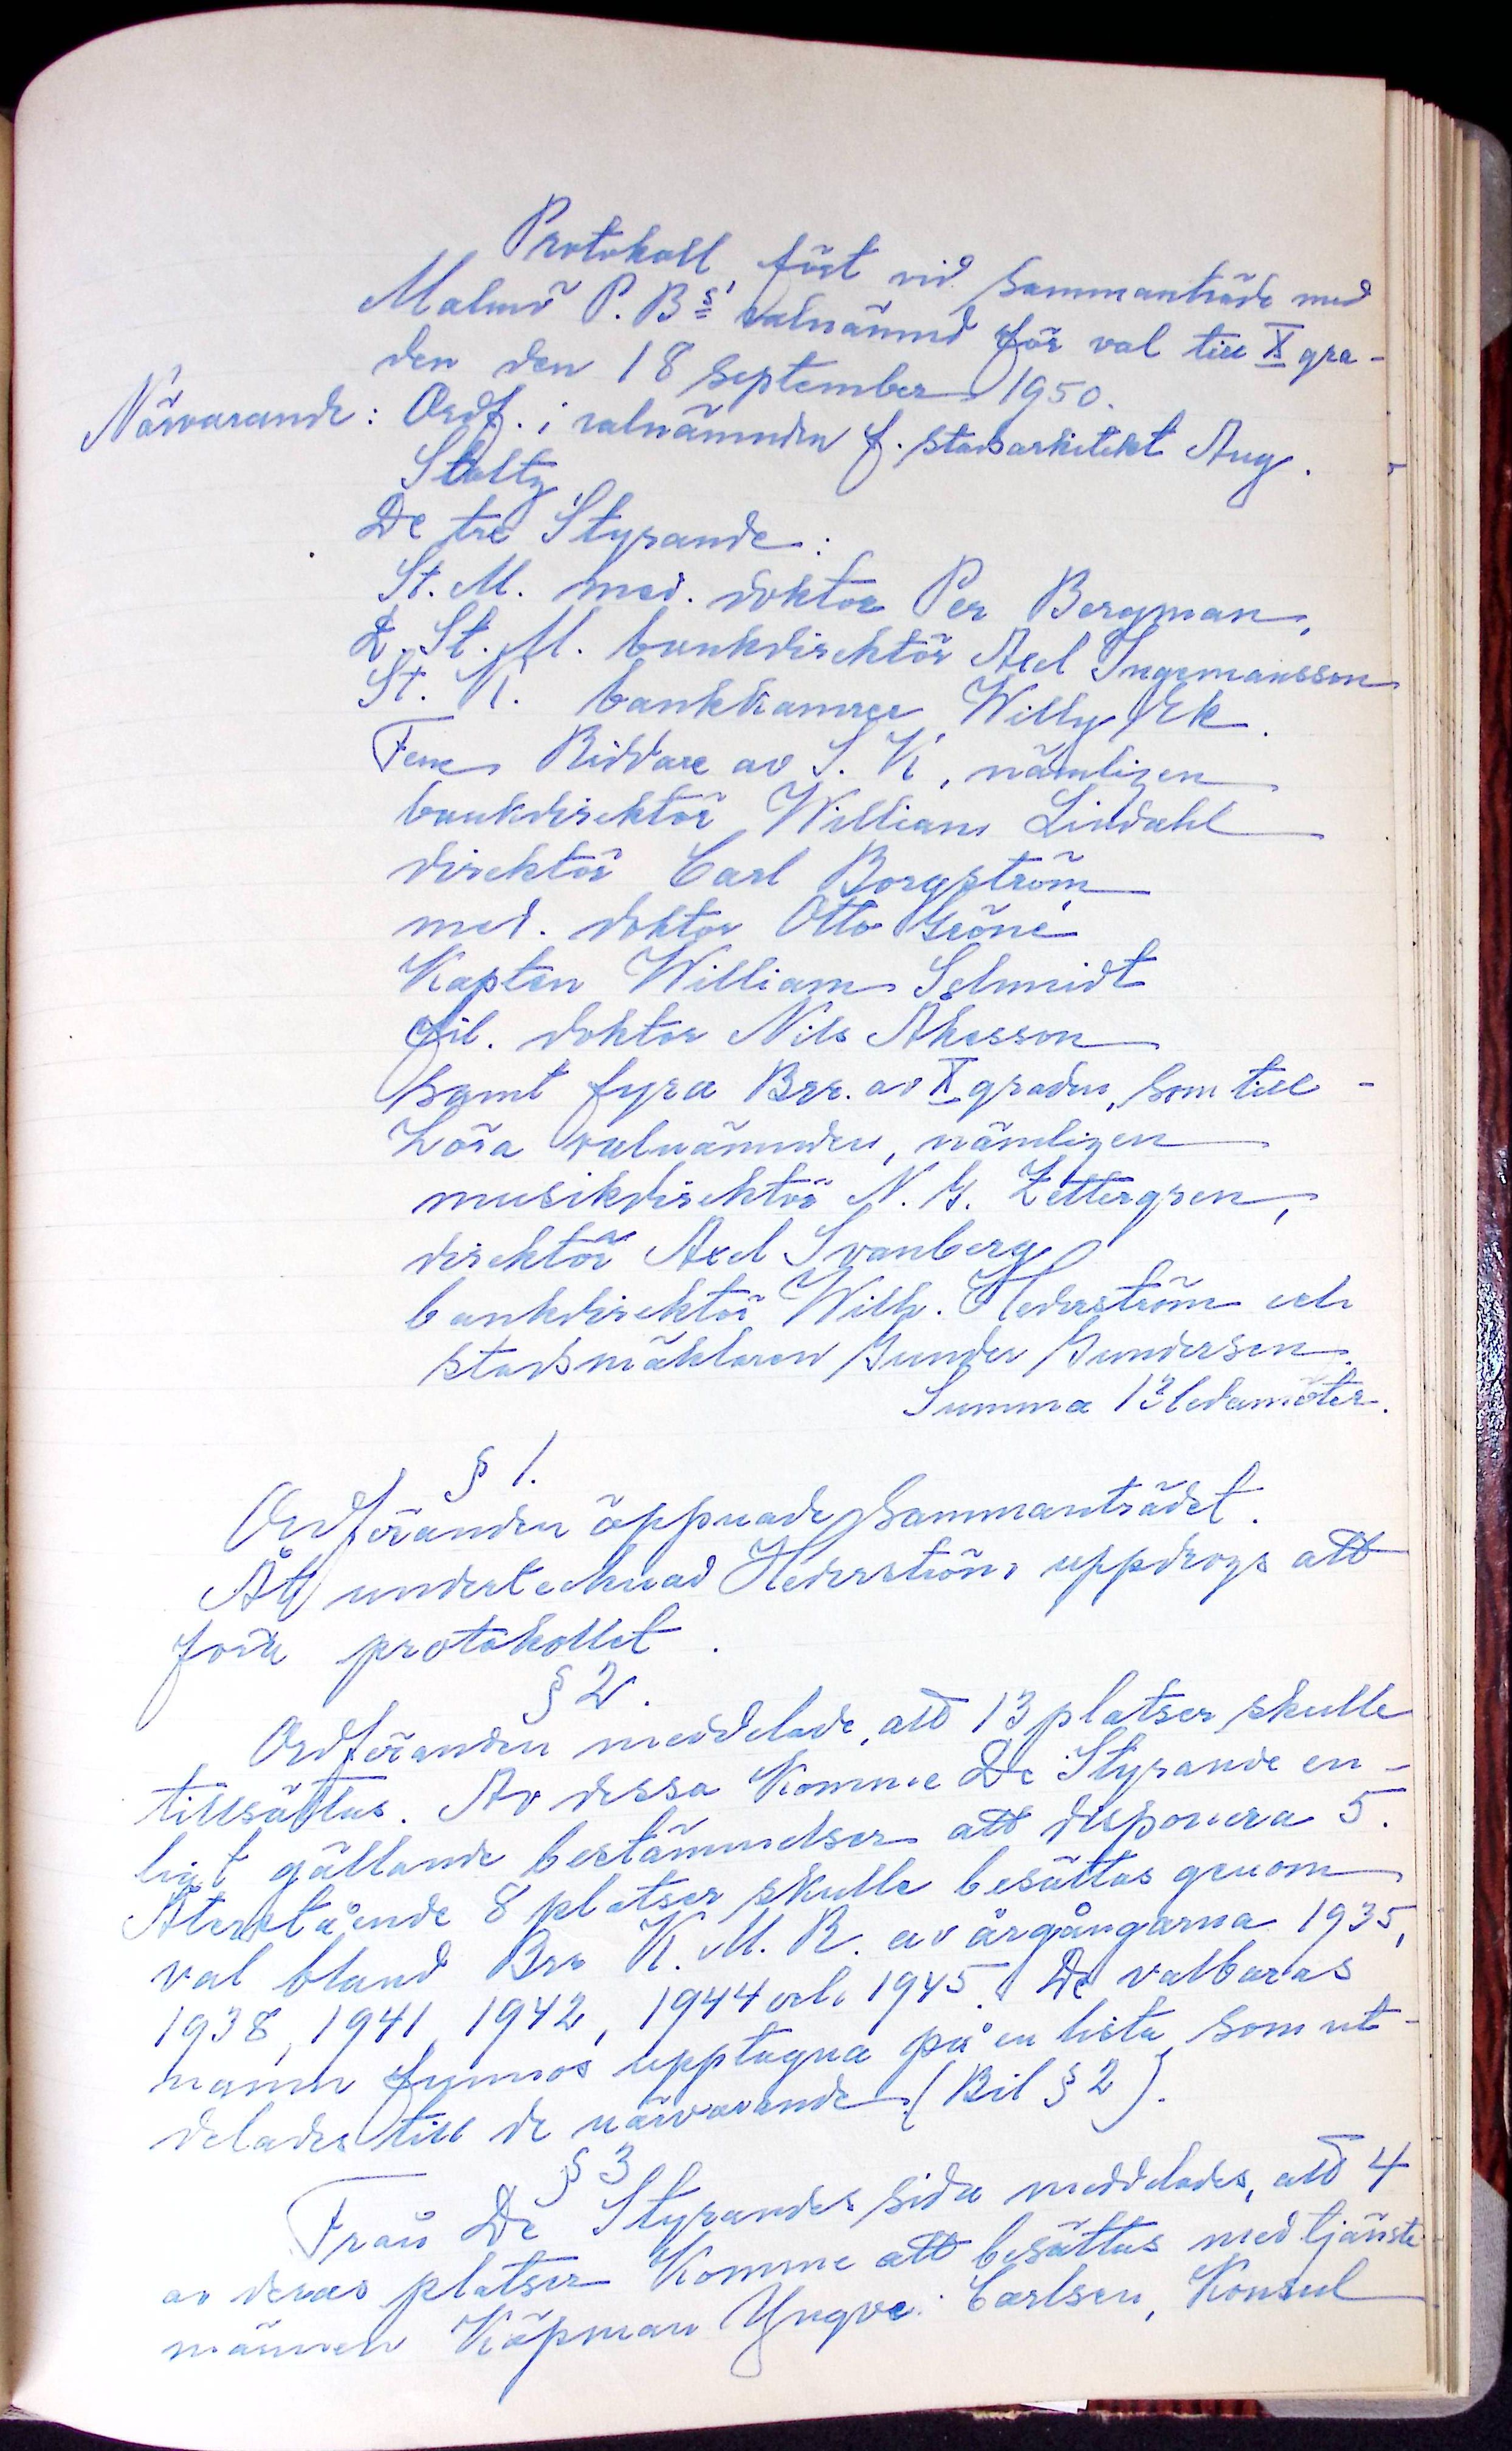 Protokoll, fört vid sammanträde med
Malmö P. B:s' valnämnd för val till X gra-
den den 18 september 1950.
Närvarande: Ordf. i valnämnden f. stadsarkitekt Aug.
Stoltz
De tre Styrande:
St. M. med. doktor Per Bergman,
D. St. M. bankdirektör Axel Ingemansson
St. K. bankkamrer Willy Ek.
Fem Riddare av S. K, nämligen
bankdirektör William Lindahl
direktör Carl Borgström
med. doktor Otto Gröné
Kapten William Schmidt
fil. doktor Nils Åkesson
samt fyra Brr. av X graden, som till-
höra valnämnden, nämligen
musikdirektör N. G. Zettergren,
direktör Axel Svanberg
bankdirektör Wilh. Hederström och
stadsmäklaren Gunder Gundersen.
Summa 13 ledamöter.
§ 1.
Ordföranden öppnade sammanträdet.
Åt undertecknad Hederström uppdrogs att
föra protokollet.
§ 2.
Ordföranden meddelade, att 13 platser skulle
tillsättas. Av dessa komme De Styrande en-
ligt gällande bestämmelser att disponera 5.
Återstående 8 platser skulle besättas genom
val bland Brr K. M. R. av årgångarna 1935,
1938, 1941, 1942, 1944 och 1945. De valbaras
namn funnos upptagna på en lista, som ut-
delades till de närvarande (Bil § 2).
§ 3
Från De Styrandes sida meddelades, att 4
av deras platser komme att besättas med tjänste-
männen Köpman Yngve Carlsen, Konsul